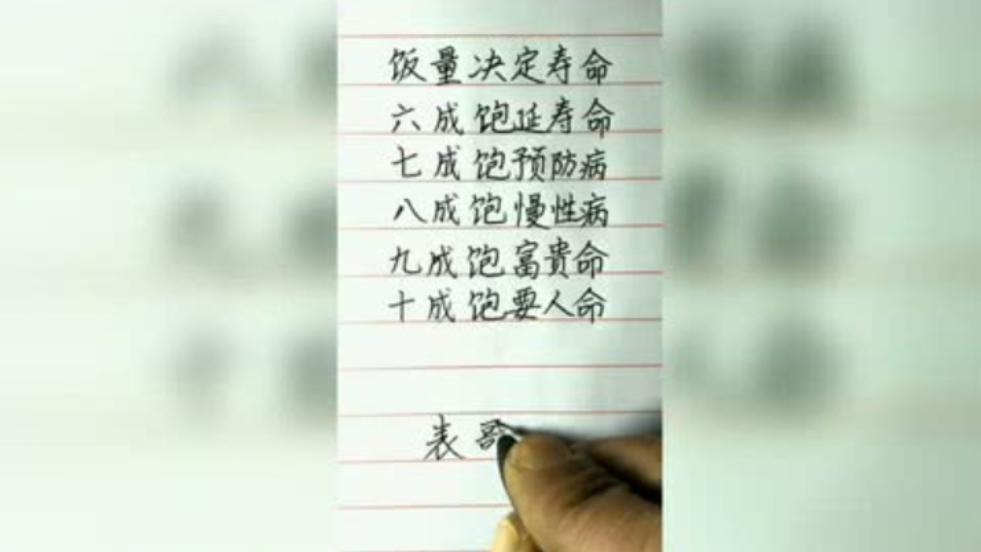 饭量决定寿命
六成饱延寿命
七成饱预防病
八成饱慢性病
九成饱富贵命
十成饱要人命
表